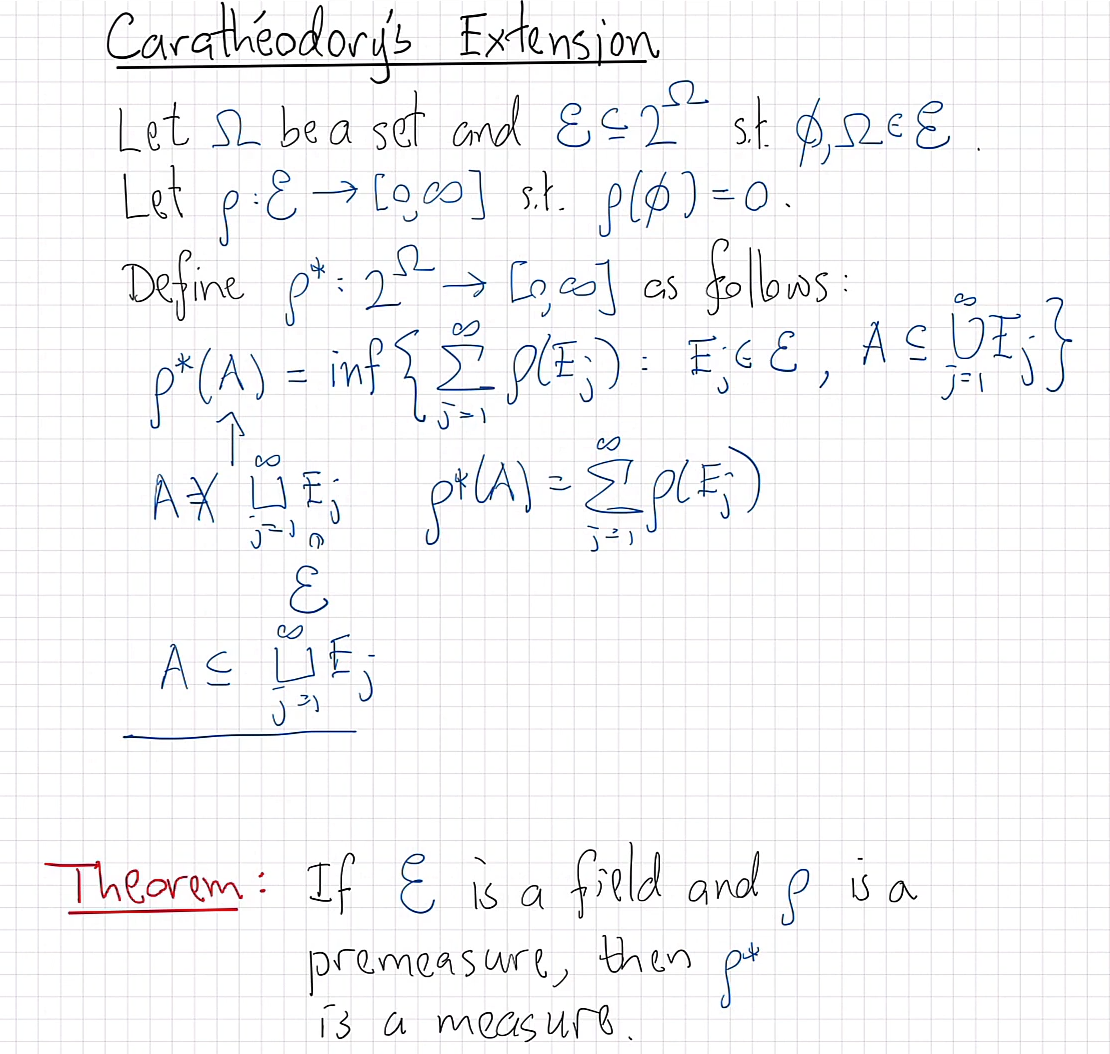 Carathéodory's Extension
Let Ω be a set and ℰ ⊆ 2^Ω s.t. ϕ, Ω ∈ ℰ.
Let ρ: ℰ → [0,∞] s.t. ρ(ϕ) = 0.
Define ρ*: 2^Ω → [0,∞] as follows:
ρ*(A) = inf{ ∑_{j=1}^{∞} ρ(E_j) : E_j ∈ ℰ, A ⊆ ⋃_{j=1}^{∞} E_j }
↑
A ≠ ⨆_{j=1}^{∞} E_j ρ*(A) = ∑_{j=1}^{∞} ρ(E_j)
∩
ℰ
A ⊆ ⨆_{j=1}^{∞} E_j
Theorem: If ℰ is a field and ρ is a
premeasure, then ρ*
is a measure.